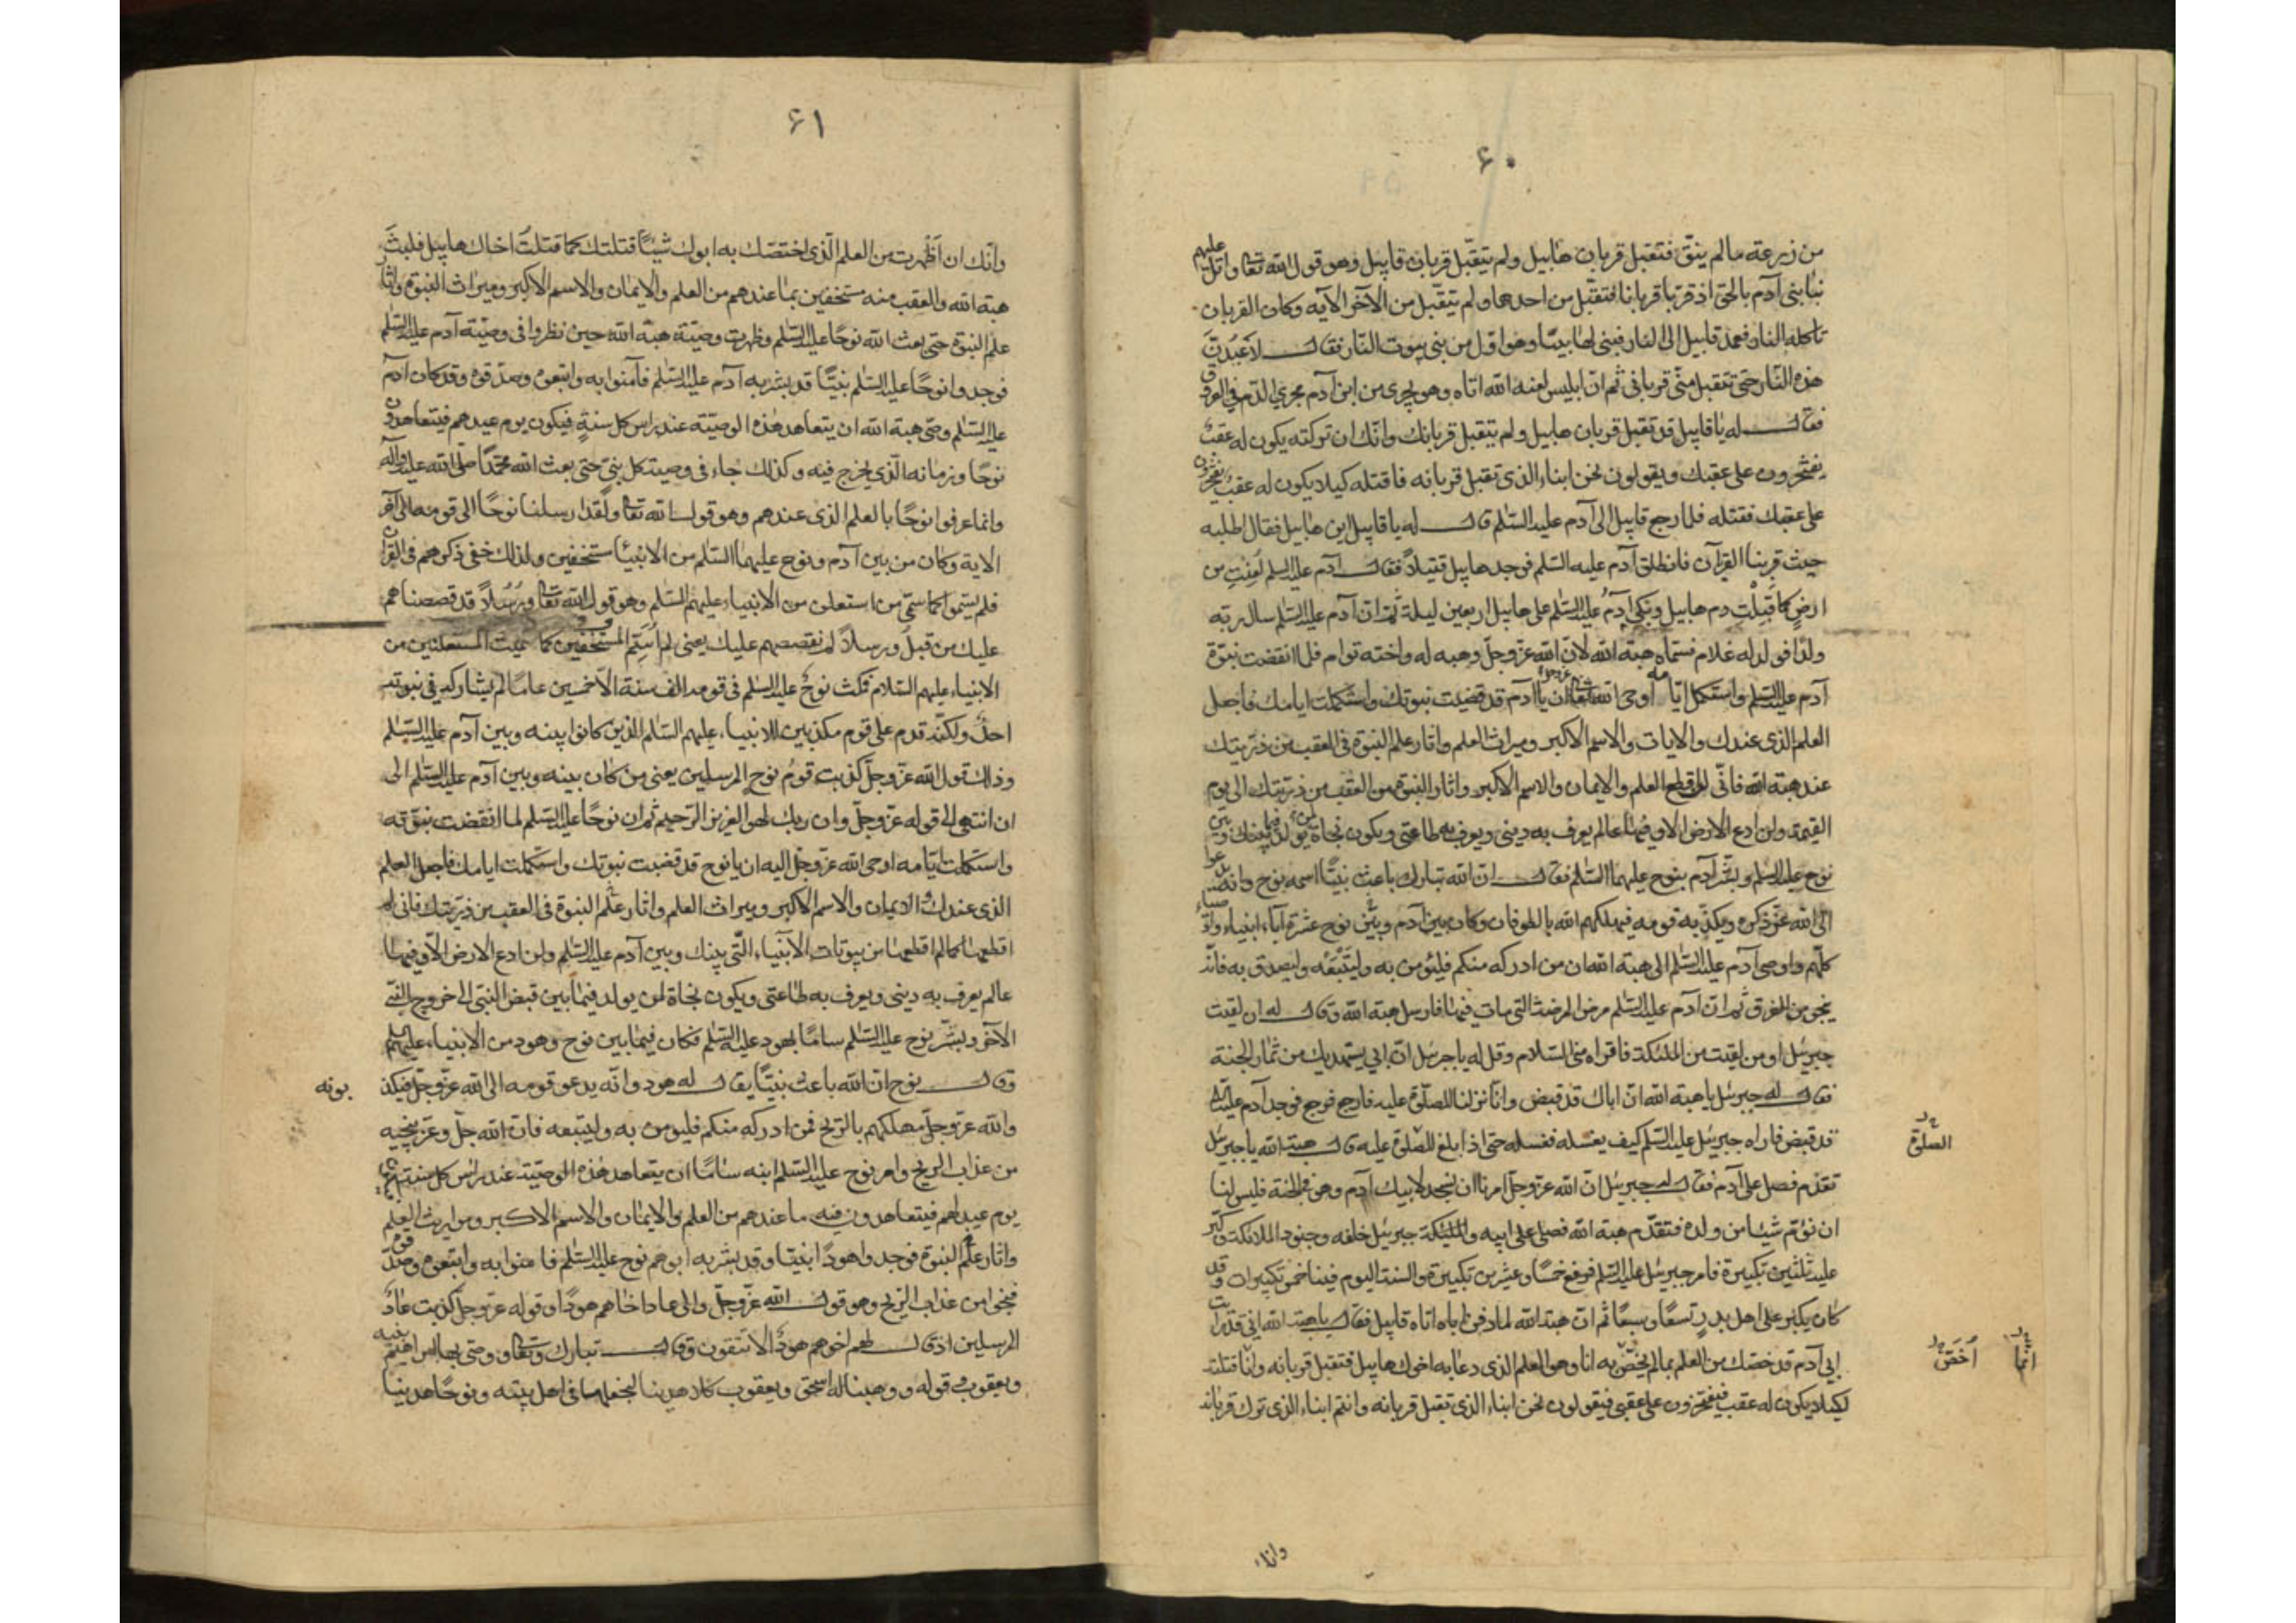 ٦٠
من زرعه ما لم ينقّ فتقبل قربان هابيل ولم يتقبّل قربان قابيل وهو قول الله تعا واتل عليهم
نبأ بنى آدم بالحق اذ قربا قربانا فتقبّل من احدهما ولم يتقبّل من الآخر الآيه وكان القربان
تاكله النار فعمد قابيل الى النار فبنى لها بيتا وهو اوّل من بنى بيوت النار فقال لاعبدنّ
هذه النّار حتى تتقبل منّى قربانى ثم انّ ابليس لعنه الله اتاه وهو يجرى من ابن آدم مجرى الدّم فى العروق
فقال له يا قابيل قد تقبل قربان هابيل ولم يتقبل قربانك وانّك ان تركته يكون له عقبٌ
يفتخرون على عقبك ويقولون نحن ابناء الذى تقبل قربانه فاقتله كيلا يكون له عقبٌ يفتخرون
على عقبك فقتله فلما رجع قابيل الى آدم عليه السّلم قال له يا قابيل اين هابيل فقال اطلبه
حيث قربنا القربان فانطلق آدم عليه السّلم فوجد هابيل قتيلاً فقال آدم عليه السلم لُعِنتِ من
ارضٍ كما قَبِلْتِ دم هابيل وبكى آدمُ عليه السّلم على هابيل اربعين ليلة ثمّ انّ آدم عليه السّلم سال ربّه
ولدًا فولد له غلام فسمّاه هبة الله لانّ الله عزّ وجلّ وهبه له واخته توام فلما انقضت نبوّة
آدم عليه السّلم واستكمل ايّامه اوحى الله تعا ان يا آدم قد قضيت نبوتك واستكملت ايامك فاجعل
العلم الذى عندك والايات والاسم الاكبر وميراث العلم واثار علم النبوّة فى العقب من ذرّيتك
عند هبة الله فانّى لن اقطع العلم والايمان والاسم الاكبر واثار النبوة من العقب من ذرّيتك الى يوم
القيمة ولن ادع الارض الا وفيها عالم يعرف به دينى ويعرف به طاعتى ويكون نجاة لمن يولد فيما بينك وبين
نوح عليه السلم وبشّر آدم بنوح عليهما السّلم فقال انّ الله تبارك باعث نبيّا اسمه نوح وانّه يدعوا
الى الله عزّ ذكره ويكذّبه قومه فيهلكهم الله بالطوفان وكان بين آدم وبين نوح عشرة آباء انبياء واوصياء
كلّهم واوصى آدم عليه السّلم الى هبة الله ان من ادركه منكم فليؤمن به وليَتّبعْه وليصدق به فانّه
ينجو من الغرق ثم انّ آدم عليه السّلم مرض المرضة التى مات فيها فارسل هبة الله وقال له ان لقيت
جبرئيل او من لقيت من الملئكة فاقراه منى السّلام وقل له يا جبرئيل انّ ابى يستهديك من ثمار الجنة
فقال له جبرئيل يا هبة الله انّ اباك قد قبض وانّا نزلنا للصلوة عليه فارجع فرجع فوجد آدم عليه السلم
قد قبض فاراه جبرئيل عليه السّلم كيف يغسله فغسله حتى اذا بلغ للصّلوة عليه قال هبة الله يا جبرئيل
الصلوة
تقدّم فصل على آدم فقال له جبرئيل انّ الله عزّ وجلّ امرنا ان نسجد لابيك آدم وهو فى الجنة فليس لنا
ان نؤمّ شيئا من ولده فتقدّم هبة الله فصلى على ابيه والملئكة جبرئيل خلفه وجنود الملائكة وكبّر
عليه ثلثين تكبيرة فامر جبرئيل عليه السّلم فرفع خمسًا وعشرين تكبيرة والسنة اليوم فينا خمس تكبيرات وقد
كان يكبّر على اهل بدر تسعًا وسبعًا ثم انّ هبة الله لما دفن اباه اتاه قابيل فقال يا هبة الله انى قد رايت
ابى آدم قد خصّك من العلم بما لم يخصّ به انا وهو العلم الذى دعا به اخوك هابيل فتقبل قربانه وانّا قتلته
اَخَصّ
انّما
لكيلا يكون له عقب فيفتخرون على عقبى فيقولون نحن ابناء الذى تقبل قربانه وانتم ابناء الذى ترك قربانه
٦١
وانّك ان اَظْهرت من العلم الّذى اختصّك به ابوك شيئًا قتلتك كما قتلتُ اخاك هابيل فلبثَ
هبة الله والعقب منه مستخفين بما عندهم من العلم والايمان والاسم الاكبر وميراث النبوة واثار
علم النبوّة حتى بعث الله نوحًا عليه السّلم وظهرت وصيّة هبة الله حين نظروا فى وصيّة آدم عليه السّلم
فوجدوا نوحًا عليه السّلم نبيًّا قد بشّر به آدم عليه السّلم فآمنوا به واتّبعوه وصدّقوه وقد كان آدم
عليه السّلم وصّى هبة الله ان يتعاهد هذه الوصيّة عند راس كل سنةٍ فيكون يوم عيدهم فيتعاهدون
نوحًا وزمانه الّذى يخرج فيه وكذلك جاء فى وصية كل نبىّ حتى بعث الله محمّدًا صلّى الله عليه وآله
وانما عرفوا نوحًا بالعلم الذى عندهم وهو قول الله تعا ولَقَد ارسلنا نوحًا الى قومه الى آخر
الاية وكان من بين آدم ونوح عليهما السّلم من الانبياء مستخفين ولذلك خفى ذكرهم فى القران
فلم يسمّوا كما سمّى من استعلن من الانبياء عليهم السّلم وهو قول الله تعا ورُسُلاً قد قصصناهم
عليك من قبلُ ورسلاً لم نقصصهم عليك يعنى لم اُسَمِّ المستخفين كما سميت المستعلنين من
الانبياء عليهم السّلام فمكث نوحٌ عليه السّلم فى قومه الف سنة الاّ خمسين عامًا لم يشاركه فى نبوته
احدٌ ولكنّه قدم على قوم مكذبين للانبياء عليهم السّلم الذين كانوا بينه وبين آدم عليه السّلم
وذلك قول الله عزّ وجلّ كذبت قومُ نوحٍ المرسلين يعنى من كان بينه وبين آدم عليه السّلم الى
ان انتهى الى قوله عزّ وجلّ وان ربك لهو العزيز الرّحيم ثم ان نوحًا عليه السّلم لما انقضت نبوّته
واستكملت ايّامه اوحى الله عزّ وجلّ اليه ان يا نوح قد قضيت نبوتك واستكملت ايامك فاجعل العلم
الذى عندك والايمان والاسم الاكبر وميراث العلم واثار علم النبوة فى العقب من ذرّيتك فانى لم
اقطعها كما لم اقطعها من بيوتات الانبياء الّتى بينك وبين آدم عليه السّلم ولن ادع الارض الّا وفيها
عالم يعرف به دينى ويعرف به طاعتى ويكون نجاة لمن يولد فيما بين قبض النبى الى خروج النبىّ
الآخر وبشّر نوح عليه السّلم سامًا بهود عليه السّلم فكان فيما بين نوح وهود من الانبياء عليهم السلم
وقال نوح ان الله باعث نبيّا يقال له هود وانّه يدعو قومه الى الله عزّ وجلّ فيكذ
بونه
والله عزّ وجلّ مهلكهم بالرّيح فمن ادركه منكم فليؤمن به وليتّبعه فانّ الله جلّ وعزّ ينجيه
من عذاب الريح وامر نوح عليه السّلم ابنه سامًا ان يتعاهد هذه الوصيّة عند راس كل سنة
يوم عيد لهم فيتعاهدون فيه ما عندهم من العلم والايمان والاسم الاكبر ومواريث العلم
واثار علم النبوّة فوجدوا هودًا نبيّا وقد بشّر به ابوهم نوح عليه السّلم فآمنوا به واتّبعوه وصدّقوه
فنجوا من عذاب الرّيح وهو قول الله عزّ وجلّ والى عاد اخاهم هودًا وقوله عزّ وجلّ كذبت عادٌ
المرسلين اذ قال لهم اخوهم هودٌ الا تتقون وقال تبارك وتعا ووصّى بها ابراهيم بنيه
ويعقوب وقوله ووهبنا له اسحق ويعقوب كلا هدينا لنجعلها فى اهل بيته ونوحًا هدينا